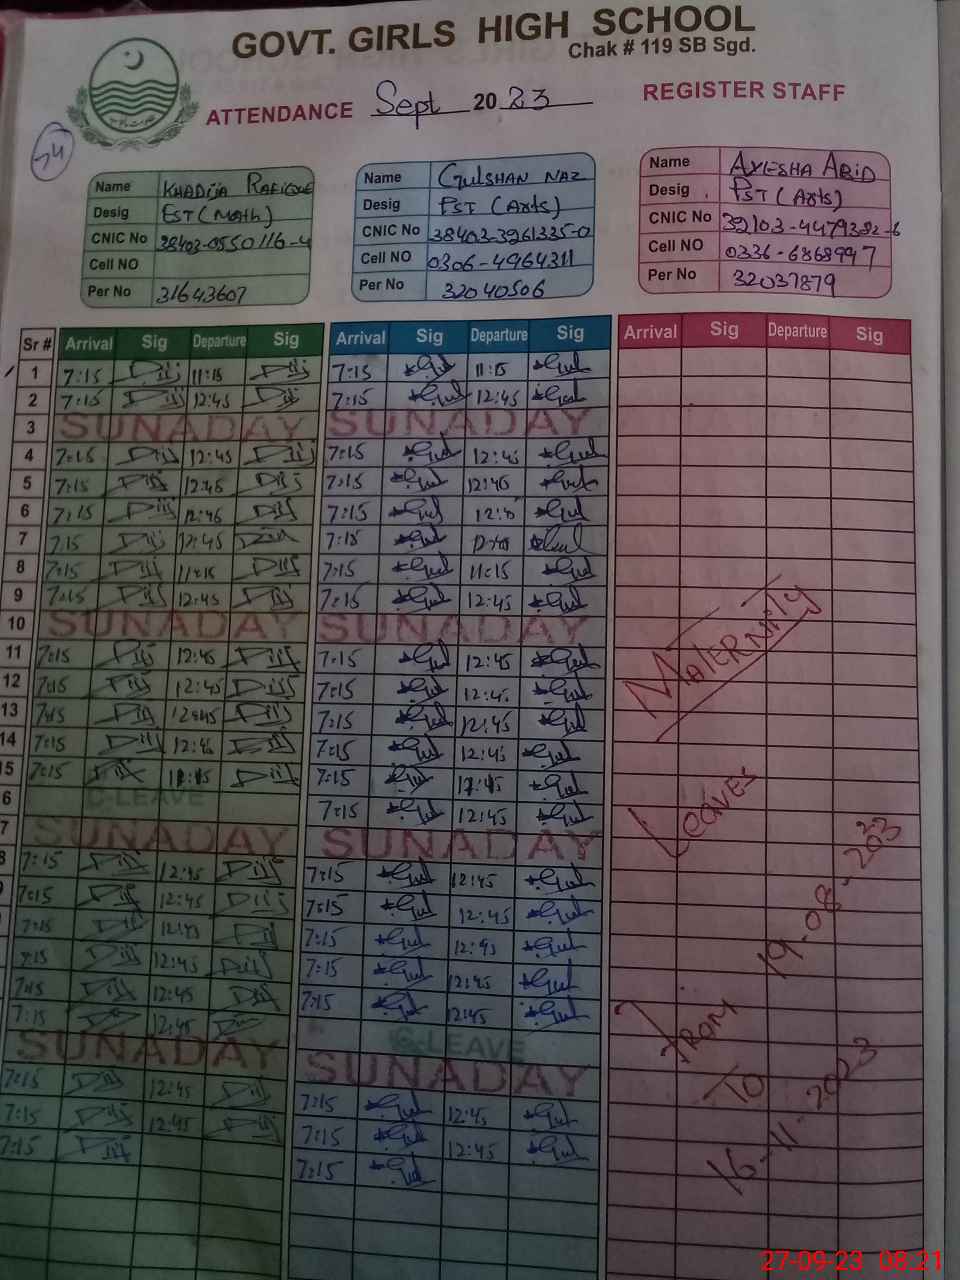 GOVT. GIRLS HIGH SCHOOL
Chak # 119 SB Sgd.
ATTENDANCE Sept 2023 REGISTER STAFF
Name KHADIJA RAFIQUE
Desig EST (Math)
CNIC No 38403-0550116-4
Cell NO
Per No 31643607
Name GULSHAN NAZ
Desig PST (Arts)
CNIC No 38403-3961335-0
Cell NO 0306-4964311
Per No 32040506
Name AYESHA ABID
Desig PST (Arts)
CNIC No 39103-4479382-6
Cell NO 0336-6868997
Per No 32037879
Sr # Arrival Sig Departure Sig Arrival Sig Departure Sig Arrival Sig Departure Sig
1 7:15 11:15 7:15 Gul 11:15 Gul
2 7:15 12:45 7:15 Gul 12:45 Gul
3 SUNADAY SUNADAY
4 7:15 12:45 7:15 Gul 12:45 Gul
5 7:15 12:45 7:15 Gul 12:45 Gul
6 7:15 12:45 7:15 Gul Gul
7 7:15 12:45 7:15 Gul Gul
8 7:15 11:15 7:15 Gul 11:15 Gul
9 7:15 12:45 7:15 Gul 12:45 Gul
10 SUNADAY SUNADAY
11 7:15 12:45 7:15 Gul 12:45 Gul
12 7:15 12:45 7:15 Gul 12:45 Gul
13 7:15 12:45 7:15 Gul 12:45 Gul
14 7:15 12:45 7:15 Gul 12:45 Gul
15 7:15 11:15 7:15 Gul 11:15 Gul
6 C-LEAVE 7:15 Gul 12:45 Gul
7 SUNADAY SUNADAY
8 7:15 12:45 7:15 Gul 12:45 Gul
7:15 12:45 7:15 Gul 12:45 Gul
7:15 12:45 7:15 Gul 12:45 Gul
7:15 12:45 7:15 Gul 12:45 Gul
7:15 12:45 7:15 Gul 12:45 Gul
7:15 12:45 C-LEAVE
SUNADAY SUNADAY
7:15 12:45 7:15 Gul 12:45 Gul
7:15 12:45 7:15 Gul 12:45 Gul
7:15 7:15 Gul
MATERNITY
LEAVES
FROM 19-08-2023
TO 16-11-2023
27-09-23 08:21